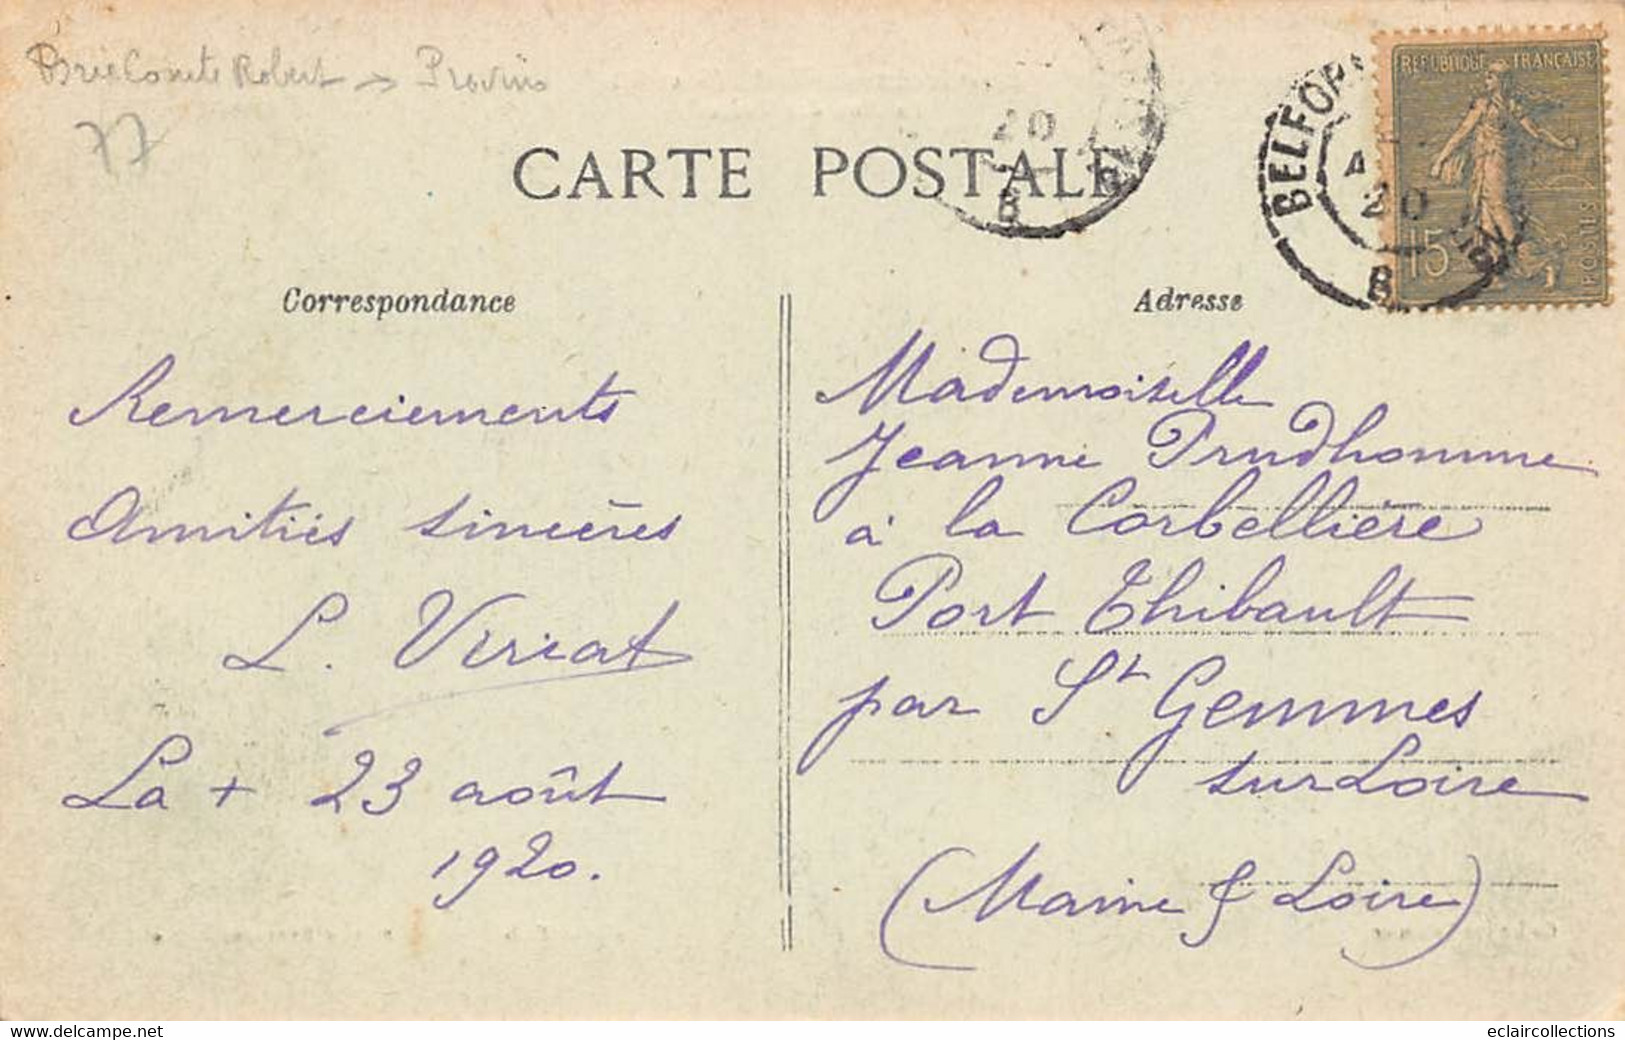 Brie Comte Robert → Provins
77
CARTE POSTALE
20
B
BELFORT
A
20
B
REPUBLIQUE FRANÇAISE
15c
POSTES
Correspondance
Remerciements
Amitiés sincères
L. Veriat
La + 23 août
1920.
Adresse
Mademoiselle
Jeanne Prudhomme
à la Corbellière
Port Thibault
par St Gemmes
sur Loire
(Maine & Loire)
eclaircollections